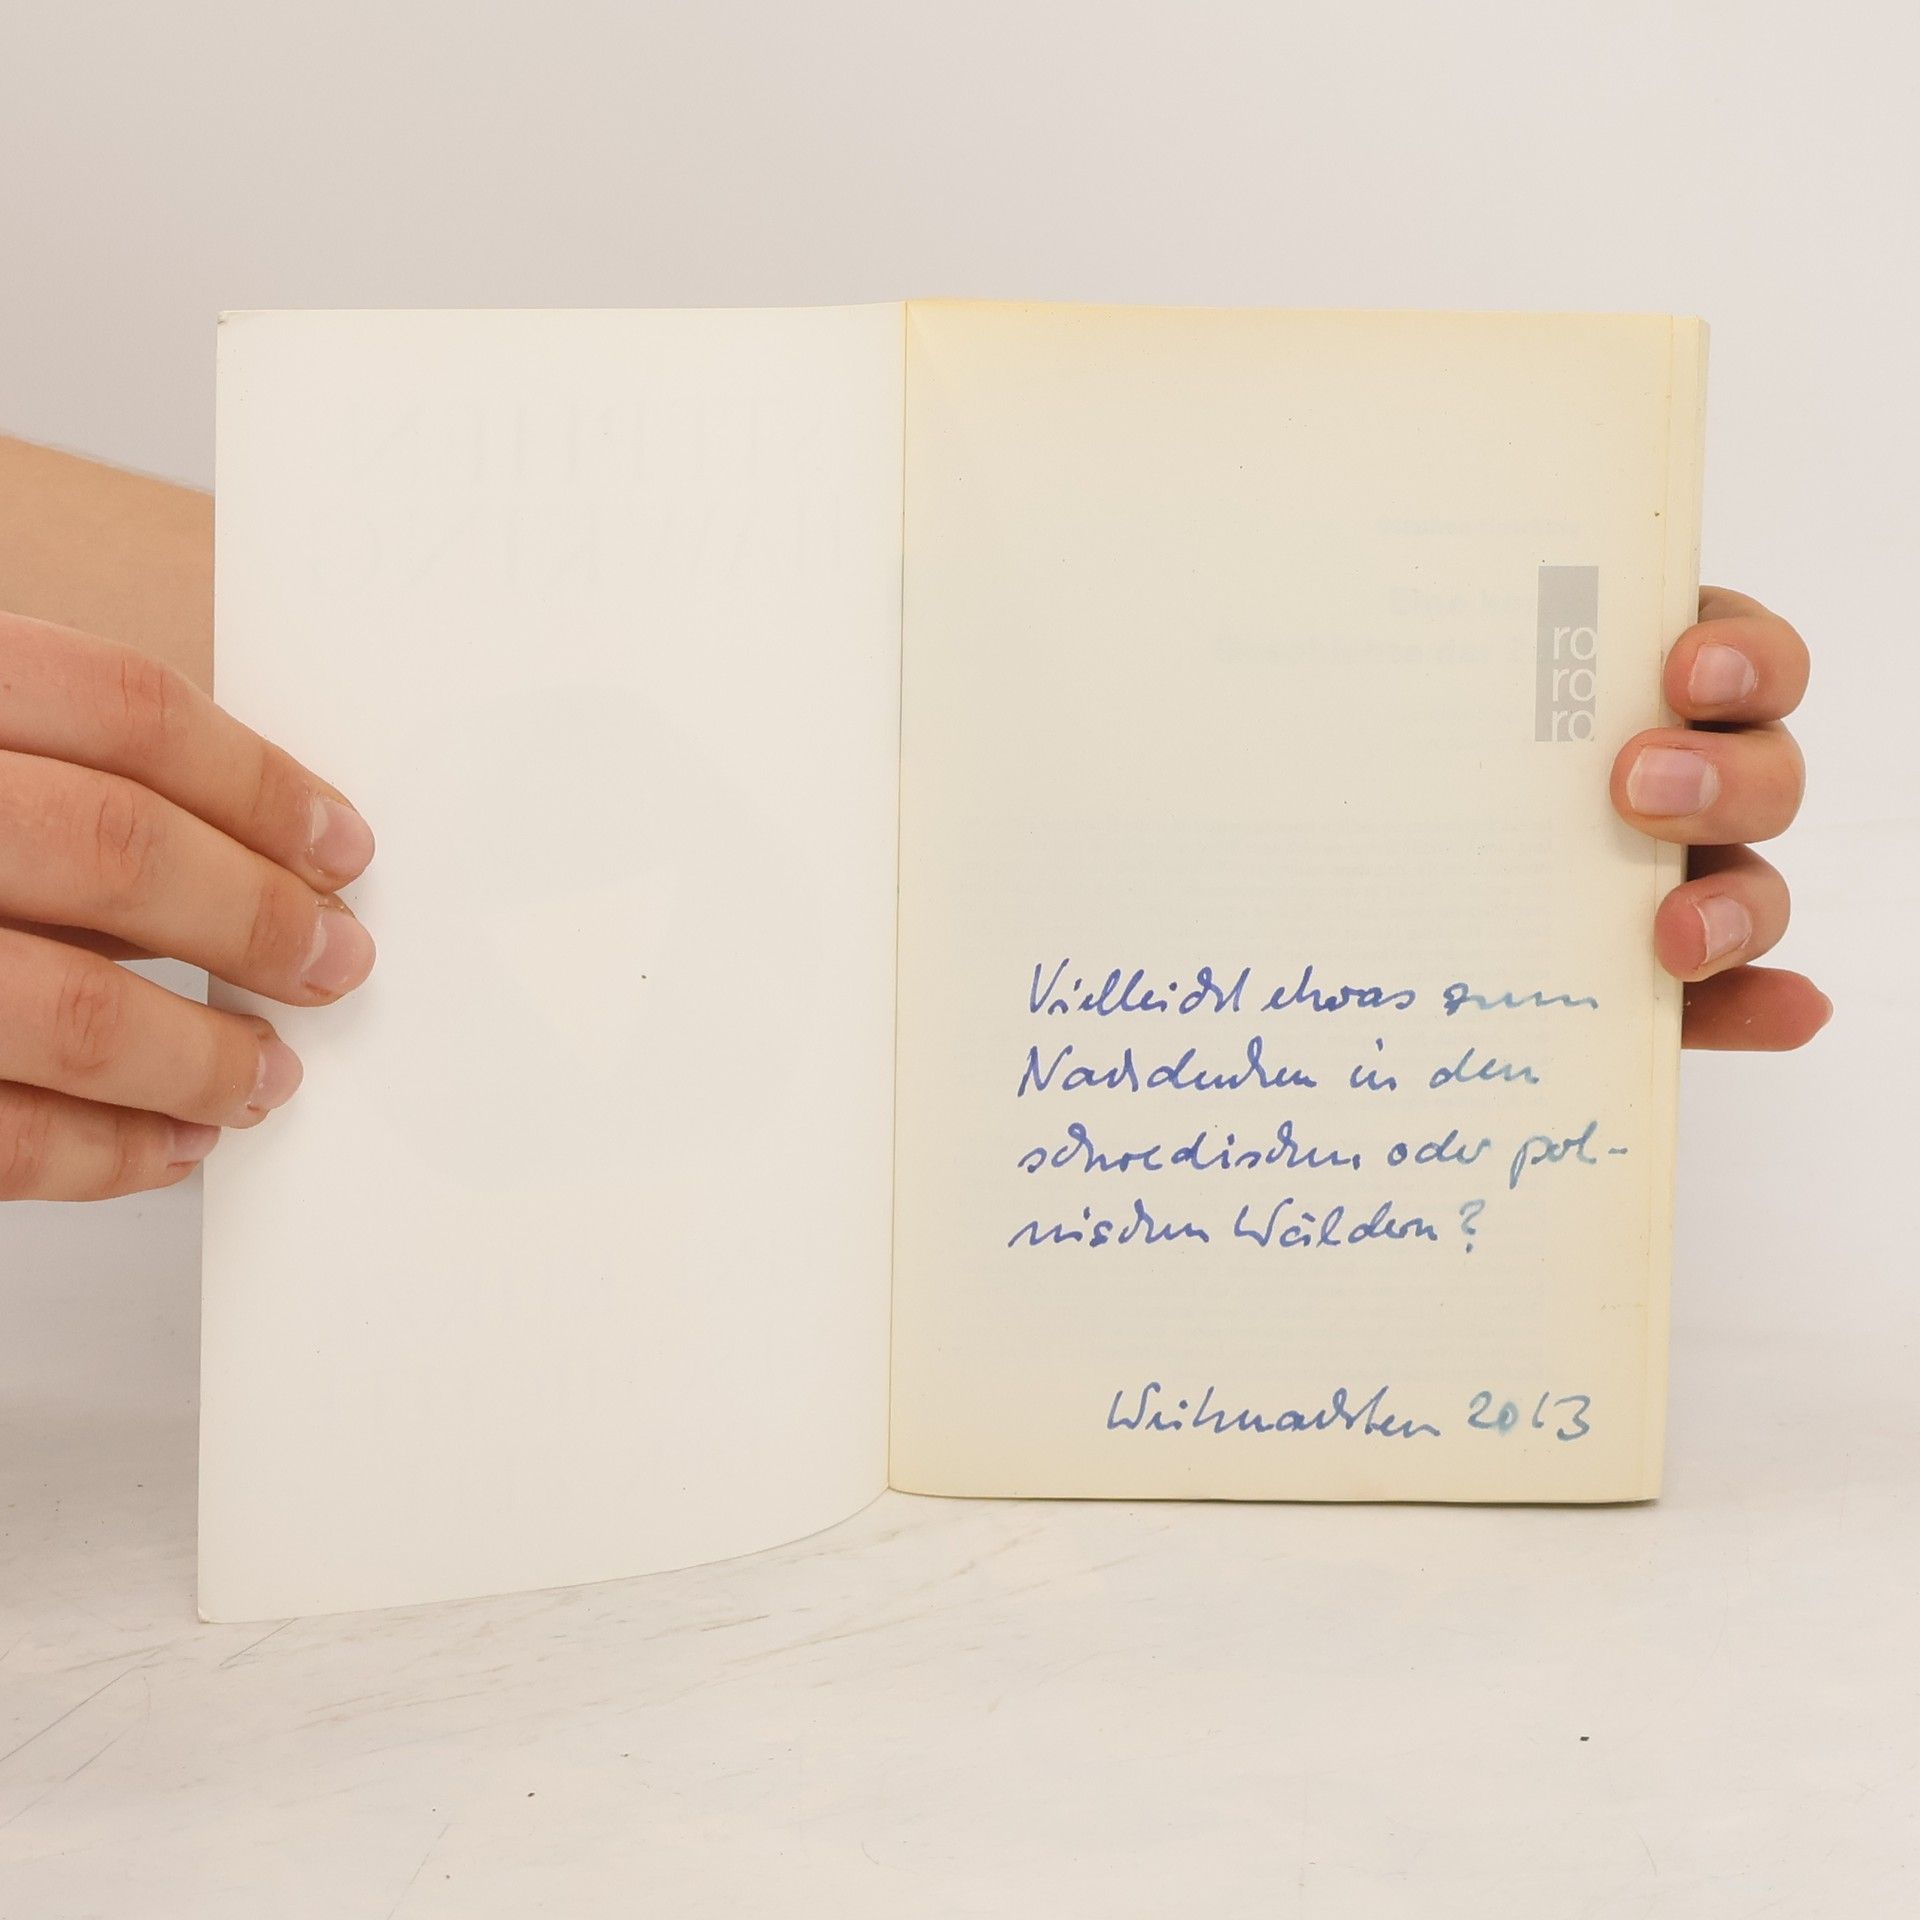 ro
ro
ro
Vielleicht etwas zum
Nachdenken in den
schwedischen oder pol-
nischen Wäldern?
Weihnachten 2013